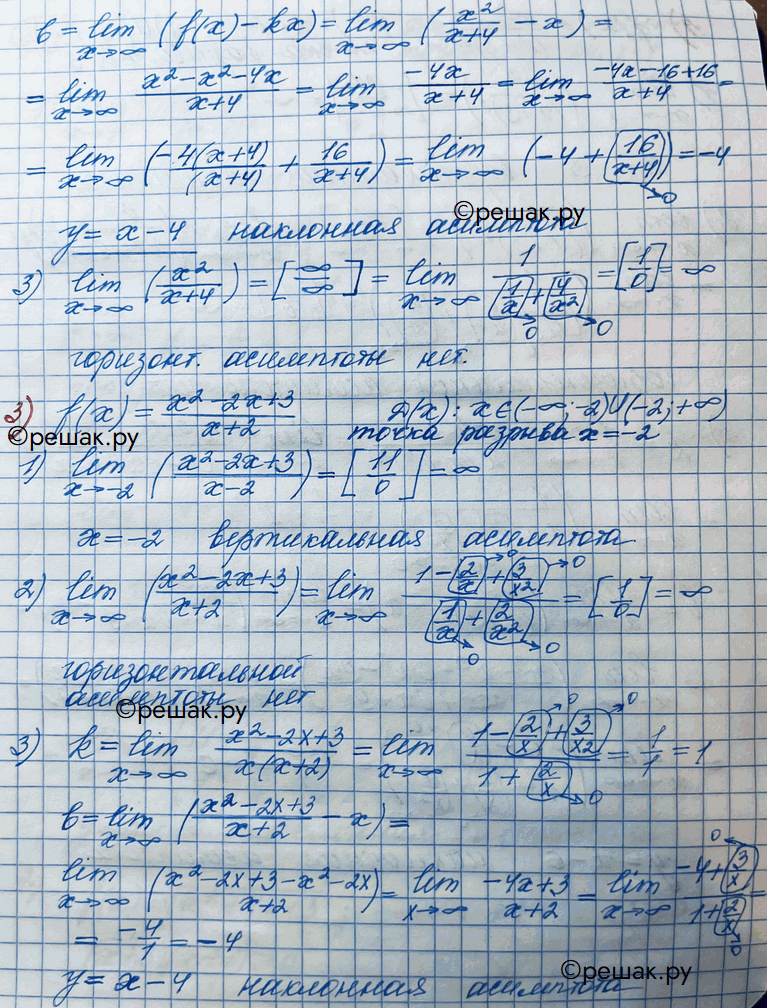 b = lim x→∞ (f(x) − kx) = lim x→∞ (x²/(x+4) − x) =
= lim x→∞ (x² − x² − 4x)/(x+4) = lim x→∞ (−4x)/(x+4) = lim x→∞ (−4x−16+16)/(x+4) =
= lim x→∞ (−4(x+4)/(x+4) + 16/(x+4)) = lim x→∞ (−4 + 16/(x+4)) = −4
→0
©решак.ру
y = x − 4 наклонная асимптота
3) lim x→∞ (x²/(x+4)) = [∞/∞] = lim x→∞ 1/(1/x + 4/x²) = [1/0] = ∞
→0 →0
горизонт. асимптоты нет.
3) f(x) = (x² − 2x + 3)/(x+2) D(x): x∈(−∞; −2)∪(−2; +∞)
©решак.ру точка разрыва x = −2
1) lim x→−2 ((x² − 2x + 3)/(x−2)) = [11/0] = ∞
x = −2 вертикальная асимптота
2) lim x→∞ ((x² − 2x + 3)/(x+2)) = lim x→∞ (1 − 2/x + 3/x²)/(1/x + 2/x²) = [1/0] = ∞
→0 →0 →0 →0
горизонтальной
асимптоты нет
©решак.ру
3) k = lim x→∞ (x² − 2x + 3)/(x(x+2)) = lim x→∞ (1 − 2/x + 3/x²)/(1 + 2/x) = 1/1 = 1
→0 →0 →0
b = lim x→∞ ((x² − 2x + 3)/(x+2) − x) =
lim x→∞ ((x² − 2x + 3 − x² − 2x)/(x+2)) = lim x→∞ (−4x+3)/(x+2) = lim x→∞ (−4 + 3/x)/(1 + 2/x) =
→0 →0
= −4/1 = −4
©решак.ру
y = x − 4 наклонная асимптота